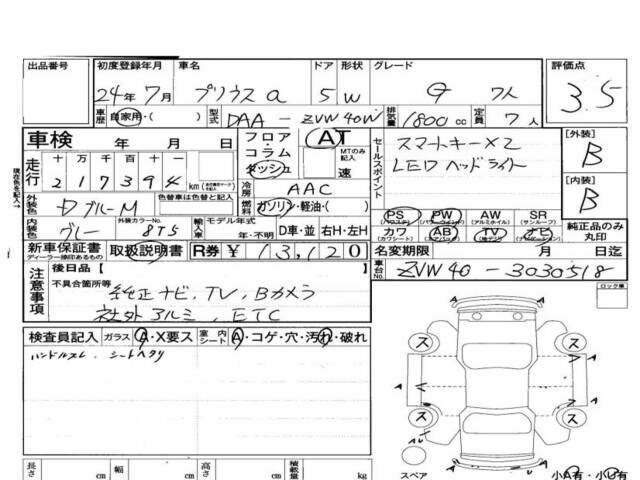 出品番号 初度登録年月 車名 ドア 形状 グレード 評価点
24年7月 プリウスα 5 W G 7人 3.5
車歴 自家用・( ) 型式 DAA-ZVW40W 排気量 1800cc 定員 7人
車検 年 月 日 フロア・コラム・ダッシュ AT MTのみ記入 速
走行 十 万 千 百 十 一
217394 km
セールスポイント スマートキー×2
LEDヘッドライト
[外装] B
[内装] B
現在色を記入→
冷房 AAC
外装色 ブルーM 色替車は色替と記入 燃料 ガソリン・軽油・( )
PS PW AW SR
(パワステ) (パワーウィンドウ) (アルミホイル) (サンルーフ)
カワ AB TV ナビ 純正品のみ丸印
(カワシート) (エアバッグ)
内装色 グレー 外装カラーNo. 8T5 輸入車 モデル年式 年・不明 D車・並 右H・左H
新車保証書 取扱説明書 R券 ¥13,120 名変期限 月 日迄
ディーラー捺印あるもの
車台No. ZVW40-3030518
注意事項 後日品【
不具合箇所等
純正ナビ、TV、Bカメラ
社外アルミ、ETC
ロック車
検査員記入 ガラス A・X要ス 室内シート A・コゲ・穴・汚れ・破れ
ハンドルスレ シートヘタリ
ス ス
A A
ス ス
スペア 小A有・小U有
長さ cm 幅 cm 高さ cm 積載量 kg